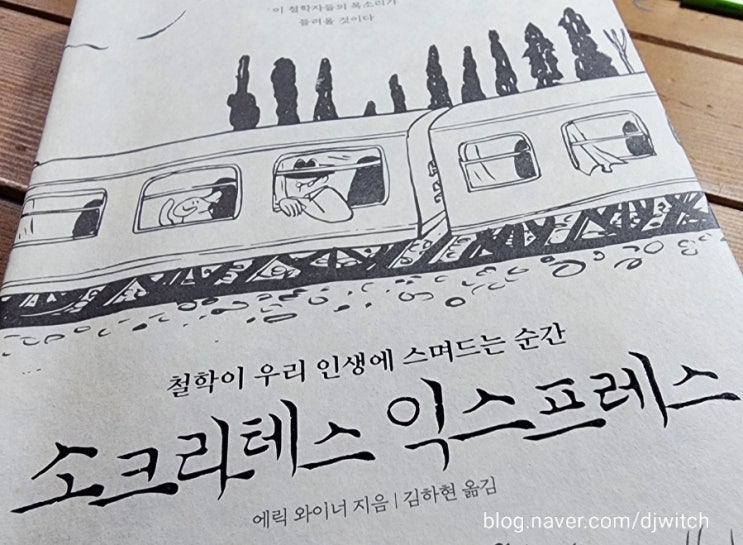 이 철학자들의 목소리가
들려올 것이다
철학이 우리 인생에 스며드는 순간
소크라테스 익스프레스
에릭 와이너 지음 | 김하현 옮김
blog.naver.com/djwitch